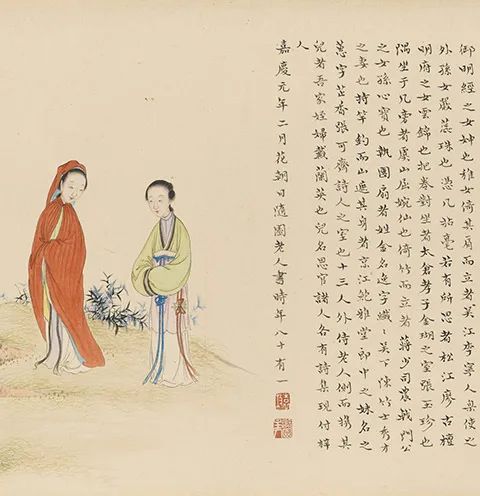 御明經之女妽也稚女倚其肩而立者吳江李寧人臬使之
外孫女嚴蕊珠也憑几拈毫若有所思者松江廖古檀
明府之女雲錦也把卷對坐者太倉孝子金瑚之室張玉珍也
隅坐于几旁者虞山屈婉仙也倚竹而立者蔣少司農戟門公
之女孫心寶也執團扇者姓金名逸字纖纖吳下陳竹士秀才
之妻也持竿釣而山遮其身者京江鮑雅堂郎中之妹名之
蕙字芷香張可齋詩人之室也十三人外侍老人側而攜其
兒者吾家姪婦戴蘭英也兒名恩官諸人各有詩集現付梓
人
嘉慶元年二月花朝日隨園老人書時年八十有一